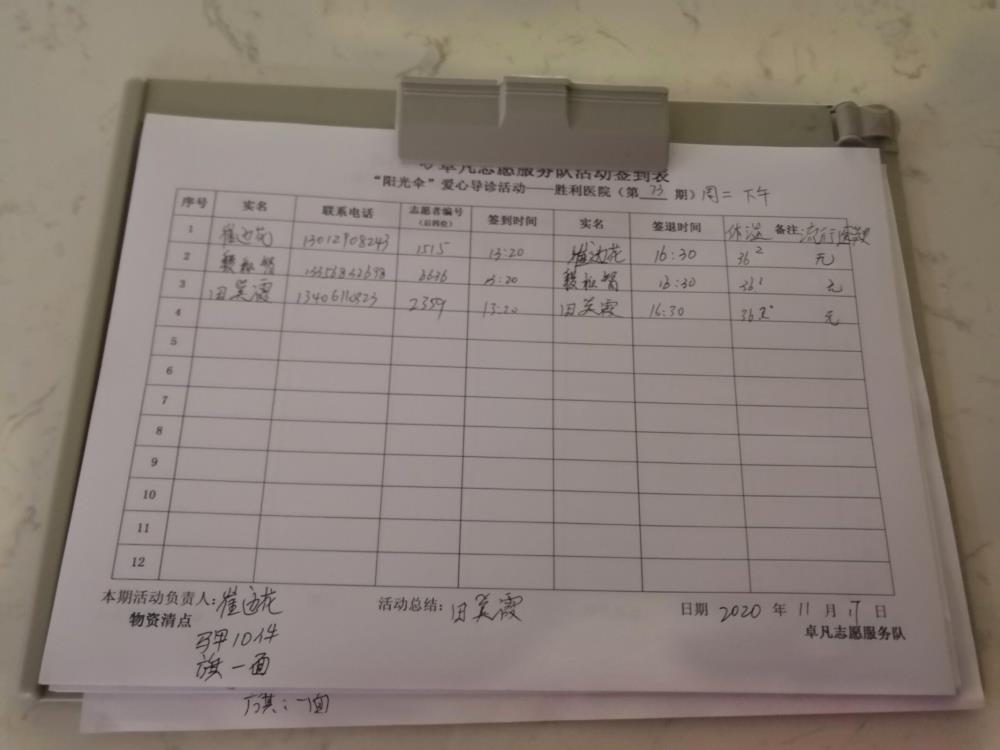 卓凡志愿服务队活动签到表
“阳光伞”爱心导诊活动——胜利医院（第 73 期）周二 下午
序号 实名 联系电话 志愿者编号（后四位） 签到时间 实名 签退时间 体温 备注 流行
1 崔 花 13012908243 1515 13:20 崔 花 16:30 36² 无
2 3636 13:20 16:30 36¹ 无
3 田英霞 13406110823 2359 13:20 田英霞 16:30 36 无
4
5
6
7
8
9
10
11
12
本期活动负责人：崔 花 活动总结：田英霞 日期 2020 年 11 月 17 日
物资清点 卓凡志愿服务队
马甲10件
旗一面
旗：一面